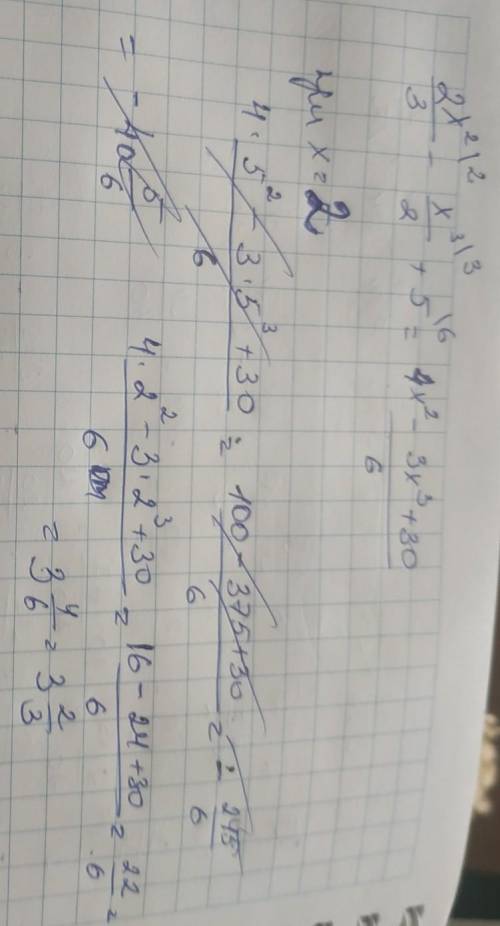 2x²\2/3 - x³\3/2 + 5\6 = 4x² - 3x³ + 30/6
при x = 2
4·5² - 3·5³ + 30/6 = 100 - 375 + 30/6 = - 245/6
= - 40 5/6
4·2² - 3·2³ + 30/6 = 16 - 24 + 30/6 = 22/6 =
= 3 4/6 = 3 2/3